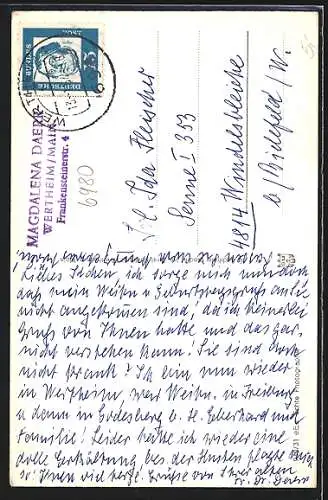 MAGDALENA DAERR
WERTHEIM/MAIN
Frankensteinerstr. 4
6980
DEUTSCHE
Frl. Ida Fleischer
Senne I 353
4814 Windelsbleiche
b/ Bielefeld/W.
Liebes Idchen, ich sorge mich nun doch
daß mein Weihn u Geburtstagsgruß an Sie
nicht angekommen sind, da ich keinerlei
Gruß von Ihnen hatte und das gar
nicht verstehen kann! Sie sind doch
nicht krank? Ich bin nun wieder
in Wertheim, war Weihn. in Freiburg
u dann in Godesberg b. H. Eberhard und
Familie! Leider hatte ich wieder eine
dolle Erkältung bes. der Husten plagte mich
so! Ihnen viel herzl. Grüße von Ihrer alten